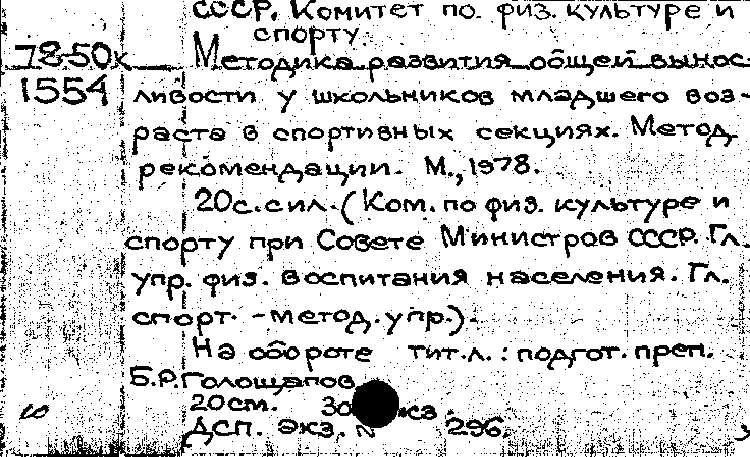 СССР. Комитет по физ. культуре и
спорту.
78-50к
Методика развития общей вынос-
1554
ливости у школьников младшего воз-
раста в спортивных секциях. Метод.
рекомендации. М., 1978.
20 с. с ил. (Ком. по физ. культуре и
спорту при Совете Министров СССР. Гл.
упр. физ. воспитания населения. Гл.
спорт.-метод. упр.).
На обороте тит. л.: подгот. преп.
Б.Р. Голощапов
20 см.
ДСП. Экз. N 296.